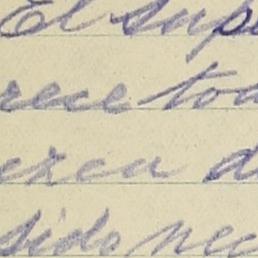 El supe
rece tod
erza d
sido nec